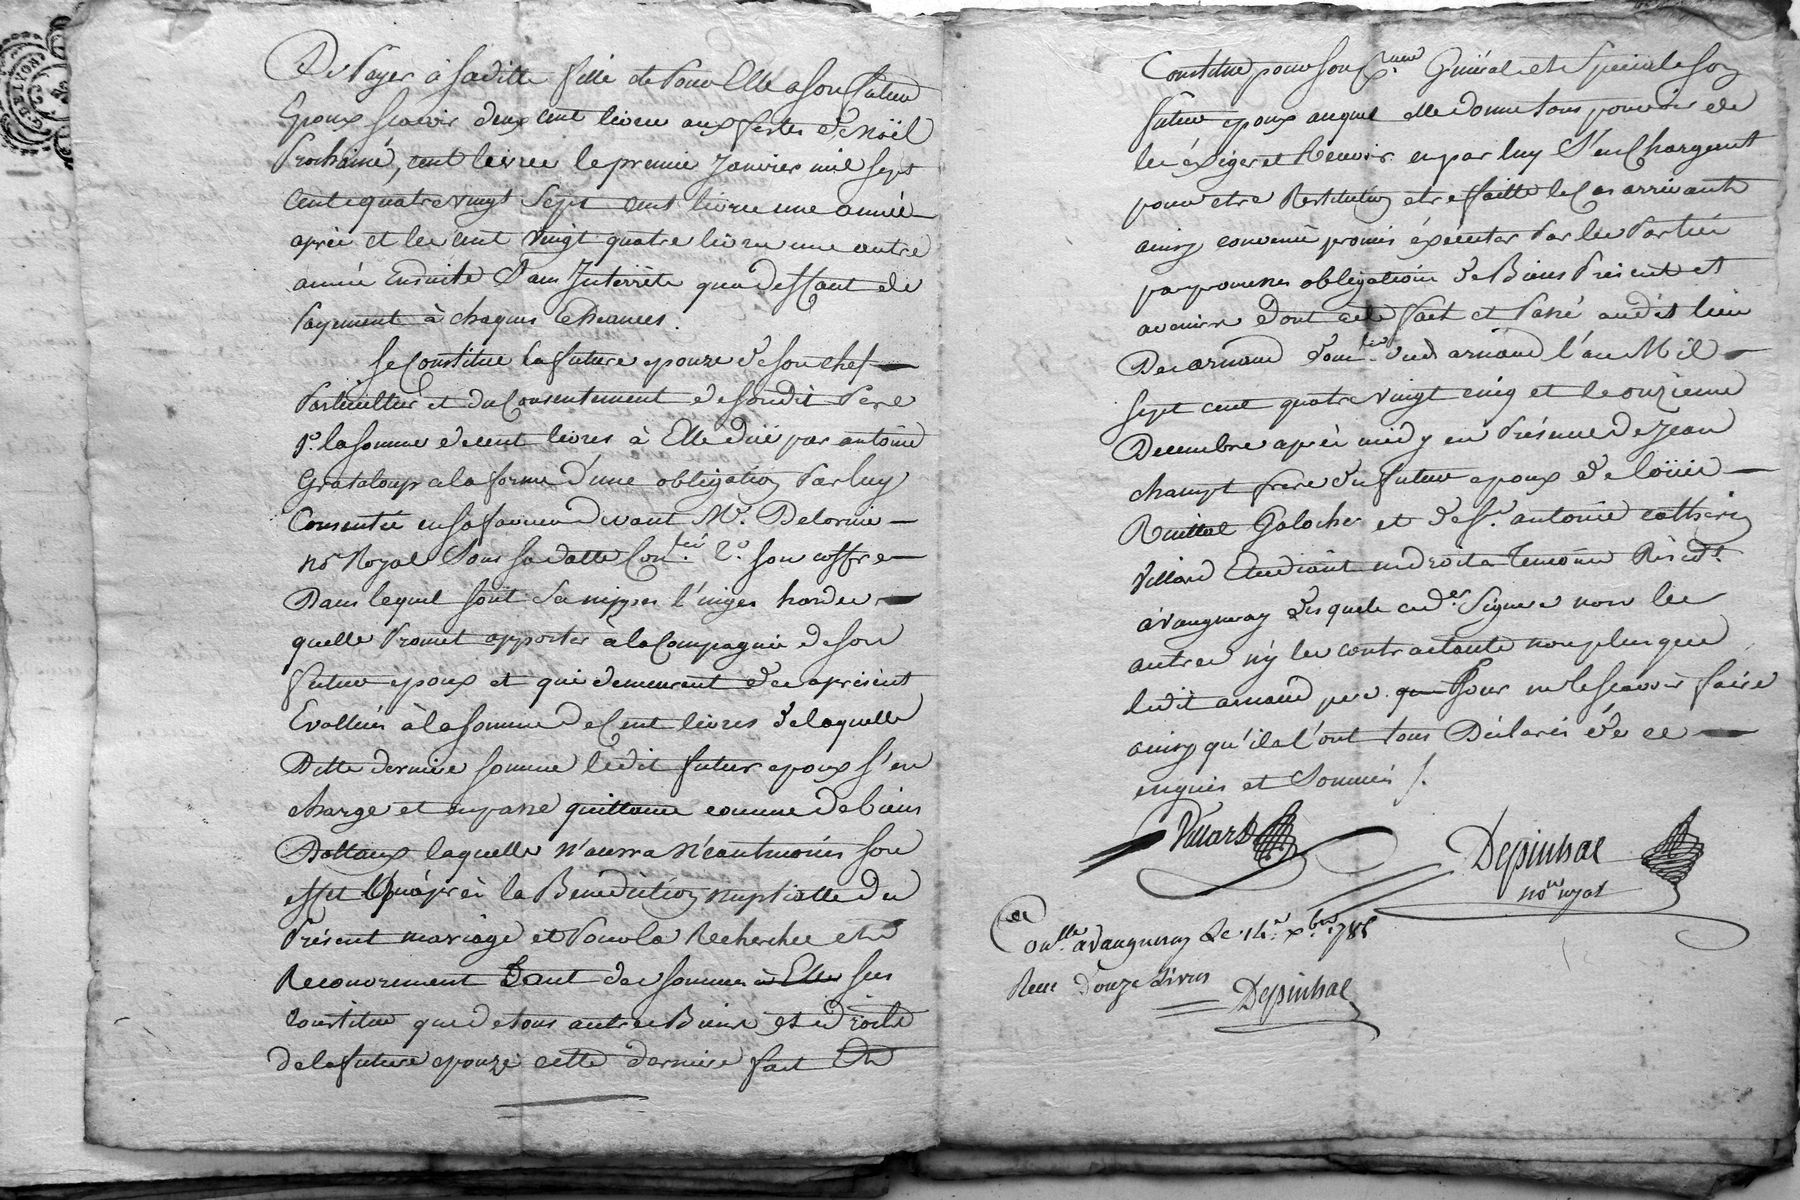 De Payer à saditte fille et Pour Elle a son futur
Epoux scavoir deux cent livres aux festes de noël
Prochaine, cent livres le premier Janvier mil sept
Cent quatre vingt Sept cent livres une année
après et les cent vingt quatre livres une autre
année Ensuite Sans Interrêts qu'a deffaut de
Payement à chaques Echeances.
Se Constitue la future epouze de son chef
Particullier et du Consentement de sondit Pere
1º. la somme de cent livres à Elle duë par antoine
Grataloup a la forme d'une obligation Par luy
Consentie en sa faveur devant Me. Delorme
nore Royal Sous sa datte Conlée. 2º. son coffre
Dans lequel sont ses nippes linges hardes
quelle Promet apporter à la Compagnie de son
futur epoux et qui demeurent des apresent
Evallués à la somme de Cent livres de laquelle
Ditte derniere somme ledit futur epoux s'en
charge et en passe quittance comme de biens
Dottaux laquelle n'aurra néantmoins son
effet qu'après la Bénédiction nuptialle du
Présent mariage et Pour la Recherche et
Recouvrement tant des sommes à Elle sus
Constitue que de tous autres Biens et droits
de la future epouze cette derniere fait et
Constitue pour son preur Général et Special son
futur epoux auquel elle donne tous pouvoirs de
les éxiger et Recevoir en par luy s'en Chargeant
pour etre Restitution etre faitte le Cas arrivant
ainsy convenu promis éxécuter Par les Parties
par promesses obligations de Biens Présent et
avenir dont acte fait et Passé audit lieu
De arnaud domle dud arnaud l'an Mil
Sept cent quatre vingt cinq et le onzieme
Decembre après midy en Présence de Jean
champt frere du futur epoux de loüis
Ruillat Galocher et de Sr. antoine catherin
Villard Etudiant en droit a Temoins Résidts.
à Vaugneray desquels ced. der Signera non les
autres n'y les contractants non plus que
ledit arnaud pere Pour ne le scavoir faire
ainsy qu'ils l'ont tous Déclarés de ce
enquis et Sommés /.
Villard
Depinhac
nore royal
Conllé à Vaugneray Le 14e. xbre. 1785
Reçu Douze Livres
Depinhac